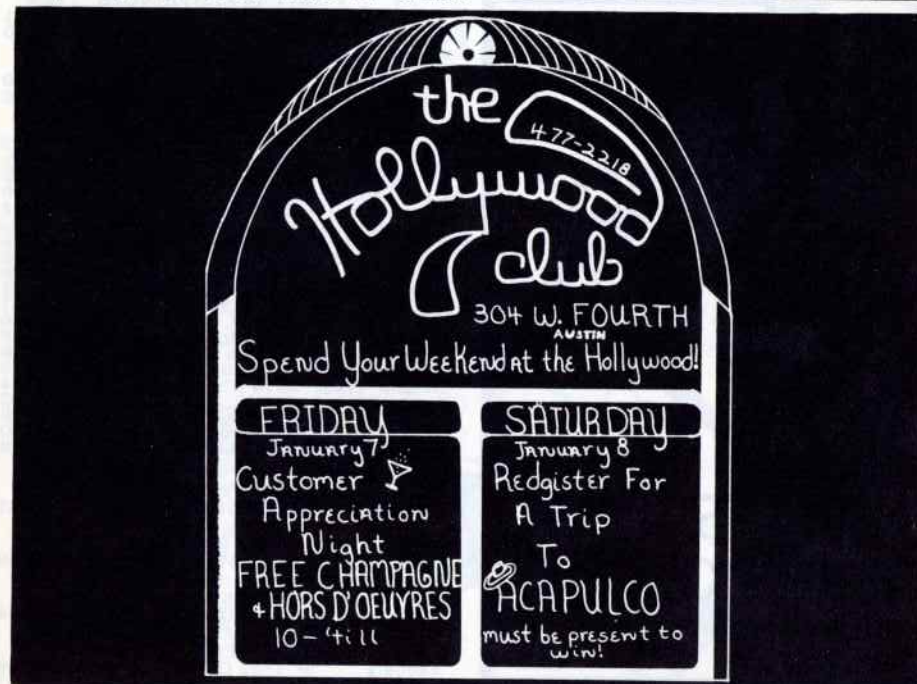 the
477-2218
Hollywood
club
304 W. FOURTH
AUSTIN
Spend Your Weekend At the Hollywood!
FRIDAY
January 7
Customer
Appreciation
Night
FREE CHAMPAGNE
+ HORS D'OEUVRES
10-'till
SATURDAY
January 8
Redgister For
A Trip
To
ACAPULCO
must be present to
win!